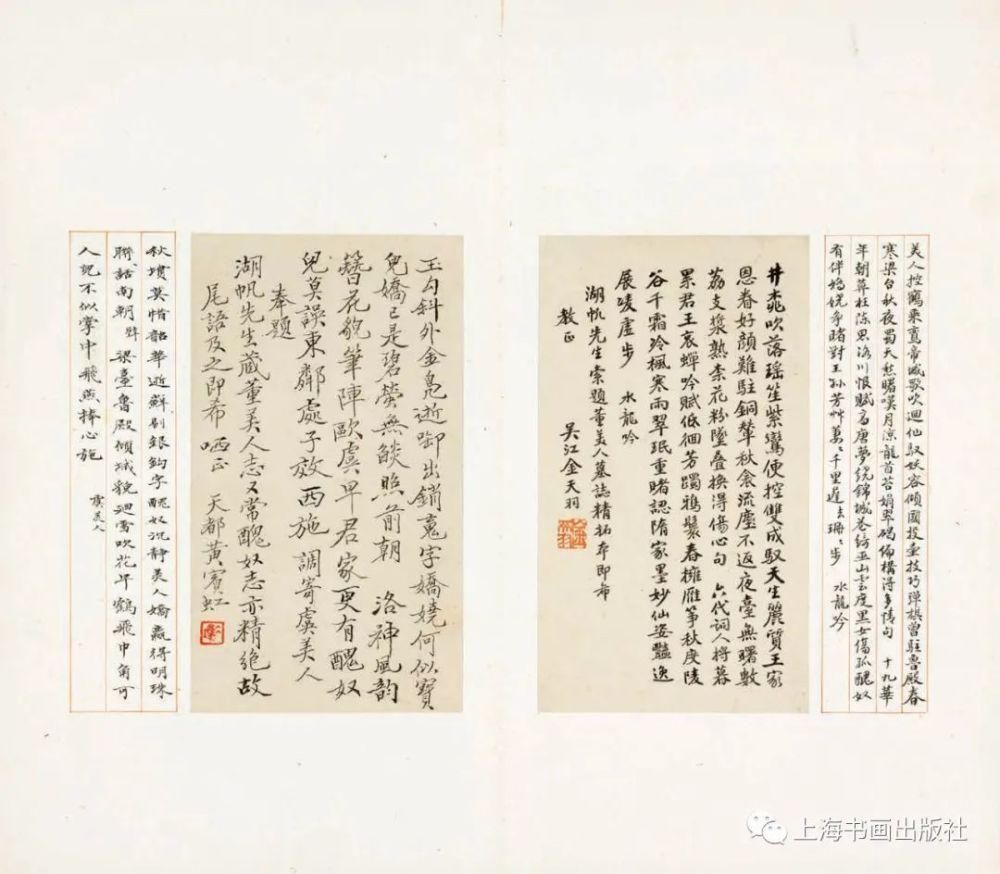 美人控鶴乘鸞帝城歌吹迴他馭妖容傾國投壺技巧彈棋曾駐魯殿春
寒梁台秋夜蜀天愁曙嘆月涼龍首苔娟翠碣偏構得多情句　十九華
年朝葬枉陳思洛川恨賦高唐夢繞錦城巷綺巫山雲度黑女傷孤醜奴
有伴鴉繞爭睹對王孫芳艸萬萬千里遲遲珊珊步　水龍吟
井䆗吹落瑶笙紫鸞使控雙成馭天生麗質王家
恩眷好顏難駐銅輦秋衾流塵不返夜臺無曙數
荔支漿熟柰花粉墜疊換得傷心句　六代詞人將暮
累君王哀蟬吟賦低徊芳躅鴉鬟春擁雁箏秋度陵
谷千霜玲楓寒雨翠珉重睹認隋家墨妙仙姿豔逸
展唛虛步　水龍吟
湖帆先生索題董美人墓誌精拓本即希
教正
吴江金天羽
玉勾斜外金鳧逝卸出銷䰟字嬌嬈何似寶
兒嬌已是碧螢無燄照前朝　洛神風韵
簪花貌筆陣歐虞卑君家更有醜奴
兒莫誤東鄰處子效西施　調寄虞美人
奉題
湖帆先生藏董美人志又常醜奴志亦精絕故
尾語及之即希哂正　天都黃賓虹
秋墳莫惜韶華逝蘚剔銀鈎字醜奴沉靜美人嬌贏得明珠
聯話南朝　梁臺魯殿傾城貌迴雪吹花年鶴飛中角可
人記不似掌中飛燕捧心施
虞美人
上海书画出版社